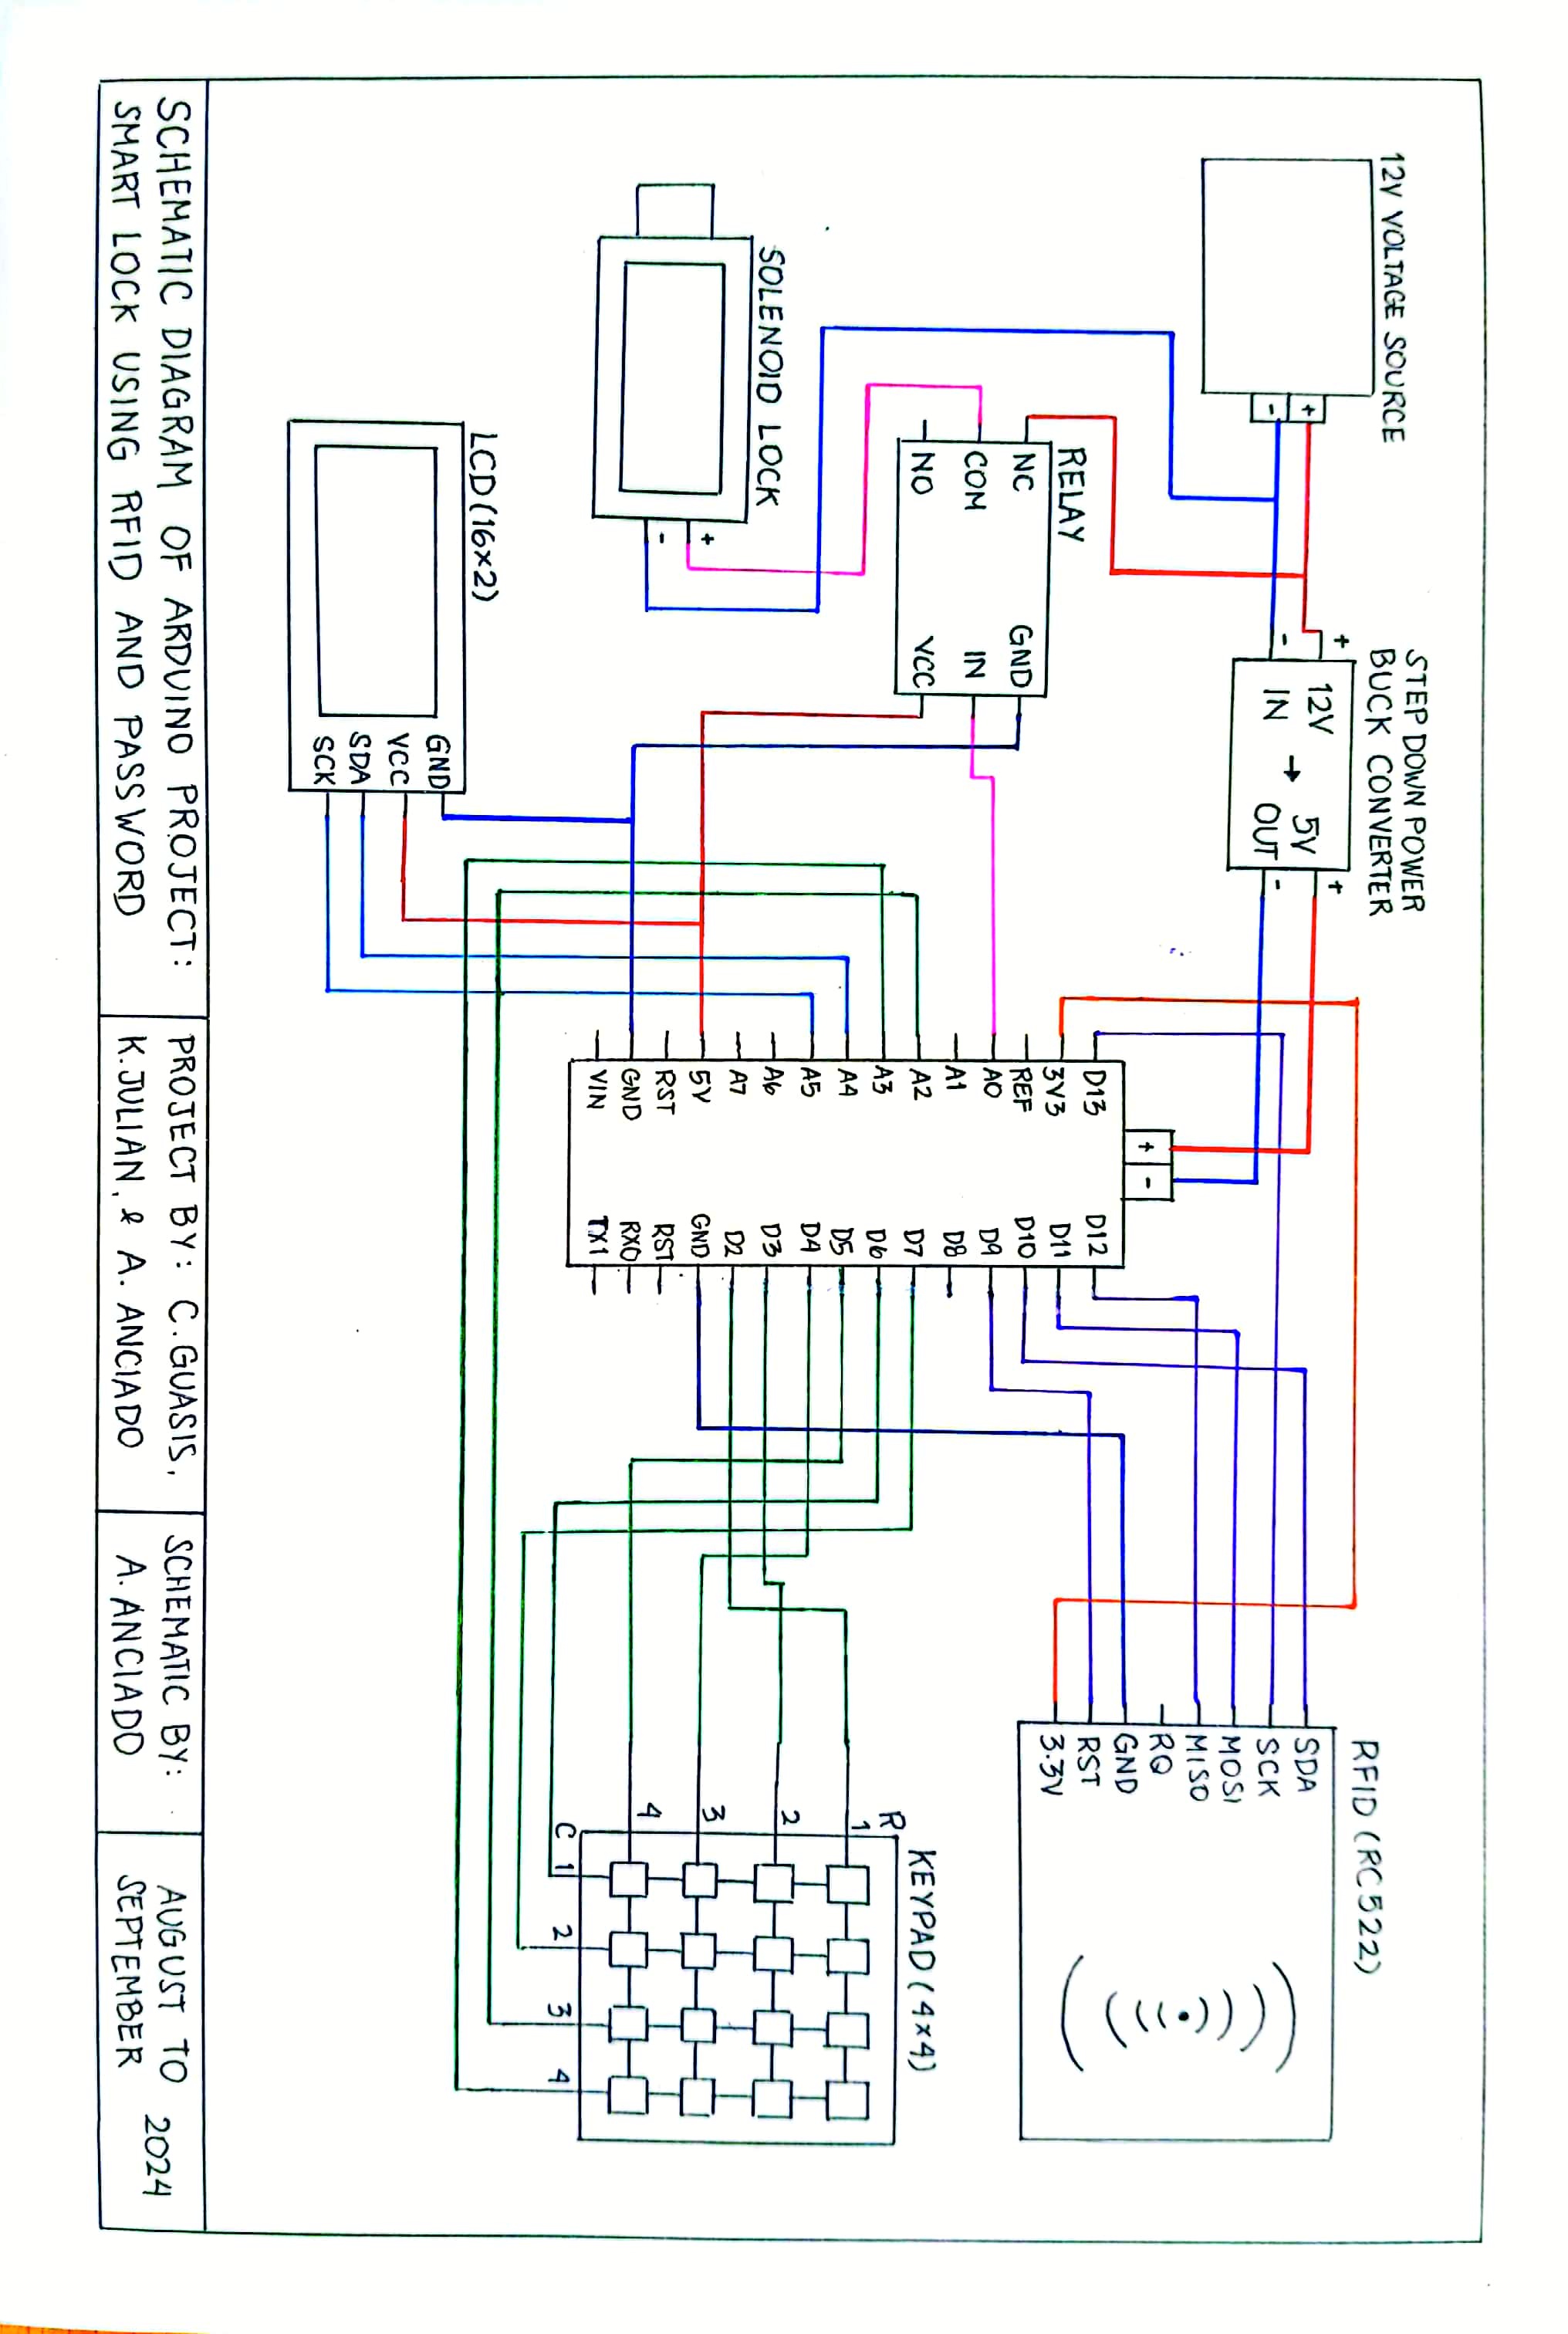 12V VOLTAGE SOURCE
+
-
STEP DOWN POWER
BUCK CONVERTER
+
-
12V → 5V
IN OUT
+
-
RELAY
NC
COM
NO
GND
IN
VCC
SOLENOID LOCK
+
-
LCD (16x2)
GND
VCC
SDA
SCK
+
-
D13
3V3
REF
A0
A1
A2
A3
A4
A5
A6
A7
5V
RST
GND
VIN
D12
D11
D10
D9
D8
D7
D6
D5
D4
D3
D2
GND
RST
RX0
TX1
RFID (RC522)
SDA
SCK
MOSI
MISO
RQ
GND
RST
3.3V
KEYPAD (4x4)
R
1
2
3
4
C 1 2 3 4
SCHEMATIC DIAGRAM OF ARDUINO PROJECT:
SMART LOCK USING RFID AND PASSWORD
PROJECT BY: C. GUASIS,
K. JULIAN, & A. ANCIADO
SCHEMATIC BY:
A. ANCIADO
AUGUST TO
SEPTEMBER 2024